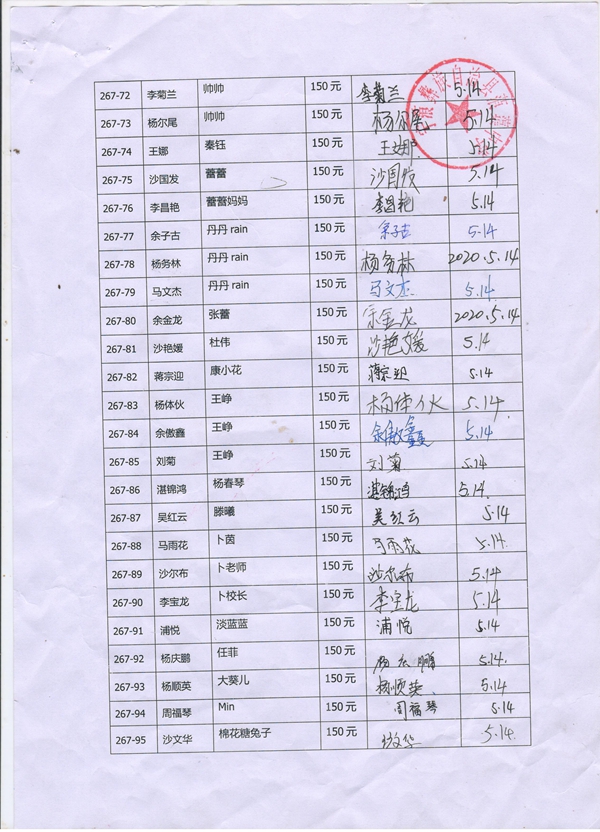 267-72 李菊兰 帅帅 150 元 李菊兰 5.14
267-73 杨尔尾 帅帅 150 元 杨尔尾 5.14
267-74 王娜 秦钰 150 元 王娜 5.14
267-75 沙国发 蕾蕾 150 元 沙国发 5.14
267-76 李昌艳 蕾蕾妈妈 150 元 李昌艳 5.14
267-77 余子古 丹丹 rain 150 元 余子古 5.14
267-78 杨务林 丹丹 rain 150 元 杨务林 2020.5.14
267-79 马文杰 丹丹 rain 150 元 马文杰 5.14
267-80 余金龙 张蕾 150 元 余金龙 2020.5.14
267-81 沙艳媛 杜伟 150 元 沙艳媛 5.14
267-82 蒋宗迎 康小花 150 元 蒋宗迎 5.14
267-83 杨体伙 王峥 150 元 杨体伙 5.14
267-84 余傲鑫 王峥 150 元 余傲鑫 5.14
267-85 刘菊 王峥 150 元 刘菊 5.14
267-86 湛锦鸿 杨春琴 150 元 湛锦鸿 5.14
267-87 吴红云 滕曦 150 元 吴红云 5.14
267-88 马雨花 卜茵 150 元 马雨花 5.14.
267-89 沙尔布 卜老师 150 元 沙尔布 5.14
267-90 李宝龙 卜校长 150 元 李宝龙 5.14
267-91 浦悦 淡蓝蓝 150 元 浦悦 5.14
267-92 杨庆鹏 任菲 150 元 杨庆鹏 5.14.
267-93 杨顺英 大葵儿 150 元 杨顺英 5.14
267-94 周福琴 Min 150 元 周福琴 5.14
267-95 沙文华 棉花糖兔子 150 元 沙文华 5.14